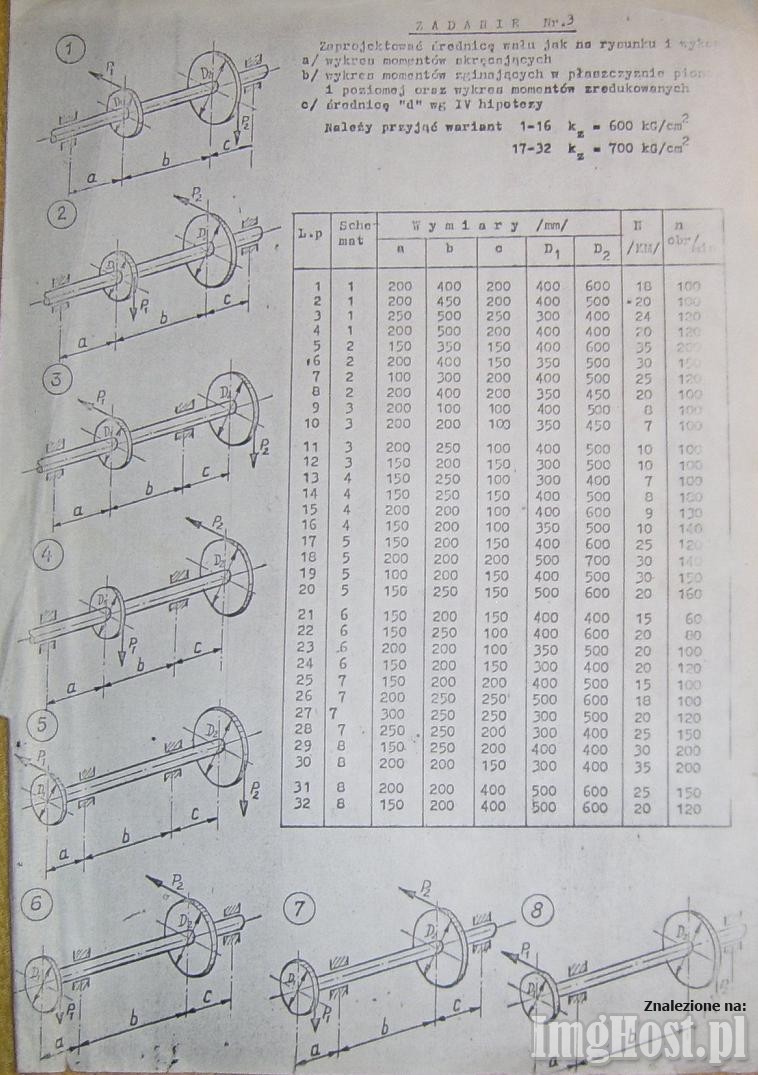 ZADANIE Nr.3
Zaprojektować średnicę wału jak na rysunku i
a/ wykres momentów skręcających
b/ wykres momentów zginających w płaszczyznie
i poziomej oraz wykres momentów zredukowanych
c/ średnicę "d" wg IV hipotezy
Należy przyjąć wariant 1-16 kz = 600 kG/cm²
17-32 kz = 700 kG/cm²
L.p Schemat Wymiary /mm/ N /KM/ n obr/min
a b c D1 D2
1 1 200 400 200 400 600 18 100
2 1 200 450 200 400 500 20 100
3 1 250 500 250 300 400 24 120
4 1 200 500 200 400 400 20 120
5 2 150 350 150 400 600 35 200
6 2 200 400 150 350 500 30 150
7 2 100 300 200 400 500 25 120
8 2 200 400 200 350 450 20 100
9 3 200 100 100 400 500 8 100
10 3 200 200 100 350 450 7 100
11 3 200 250 100 400 500 10 100
12 3 150 200 150 300 500 10 100
13 4 150 250 100 300 400 7 100
14 4 150 250 150 400 500 8
15 4 200 200 100 400 600 9 130
16 4 150 200 100 350 500 10 140
17 5 150 200 150 400 600 25 120
18 5 200 200 200 500 700 30 140
19 5 100 200 150 400 500 30 150
20 5 150 250 150 500 600 20 160
21 6 150 200 150 400 400 15 60
22 6 150 250 100 400 600 20 80
23 6 200 200 100 350 500 20 100
24 6 150 200 150 300 400 20 120
25 7 150 200 200 400 500 15 100
26 7 200 250 250 500 600 18 100
27 7 300 250 250 300 500 20 120
28 7 250 250 200 300 400 25 150
29 8 150 250 200 400 400 30 200
30 8 200 200 150 300 400 35 200
31 8 200 200 400 500 600 25 150
32 8 150 200 400 500 600 20 120
1
P1 D1 D2 P2
a b c
2
P2 D1 P1
a b c
3
P1 D1 D2 P2
a b c
4
P2 D1 D2 P1
a b c
5
P1 D1 D2 P2
a b c
6
P2 D1 D2 P1
a b c
7
P2 D1 D2 P1
a b c
8
P1 D1 D2
a b
Znalezione na:
imgHost.pl